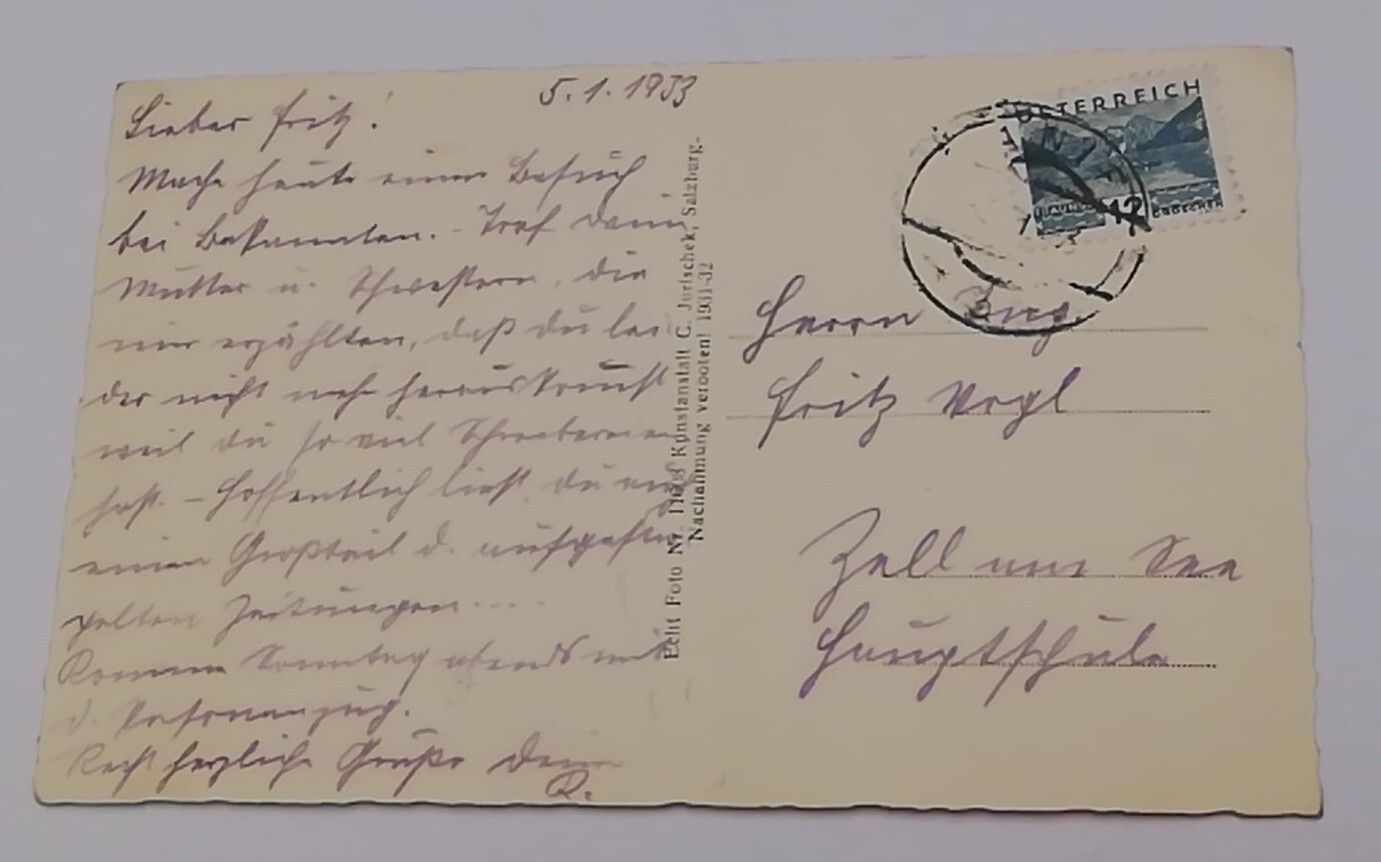 5.1.1933
Lieber Fritz!
Mache heute einen Besuch
bei Bekannten. - Traf Deine
Mutter u. Schwestern, die
mir erzählten, daß Du lei
der nicht mehr herauskommst
weil Du so viel Schreibereien
hast. - Hoffentlich liest Du auch
einen Großteil d. aufgesta
pelten Zeitungen.....
Komme Sonntag abends mit
d. Personenzug.
Recht herzliche Grüße Dein
R.
Echt Foto Nr. Kunstanstalt C. Jurischek, Salzburg.
Nachahmung verboten! 1931-32
ÖSTERREICH
12
GROSCHEN
Herrn Ing.
Fritz Vogl
Zell am See
Hauptschule